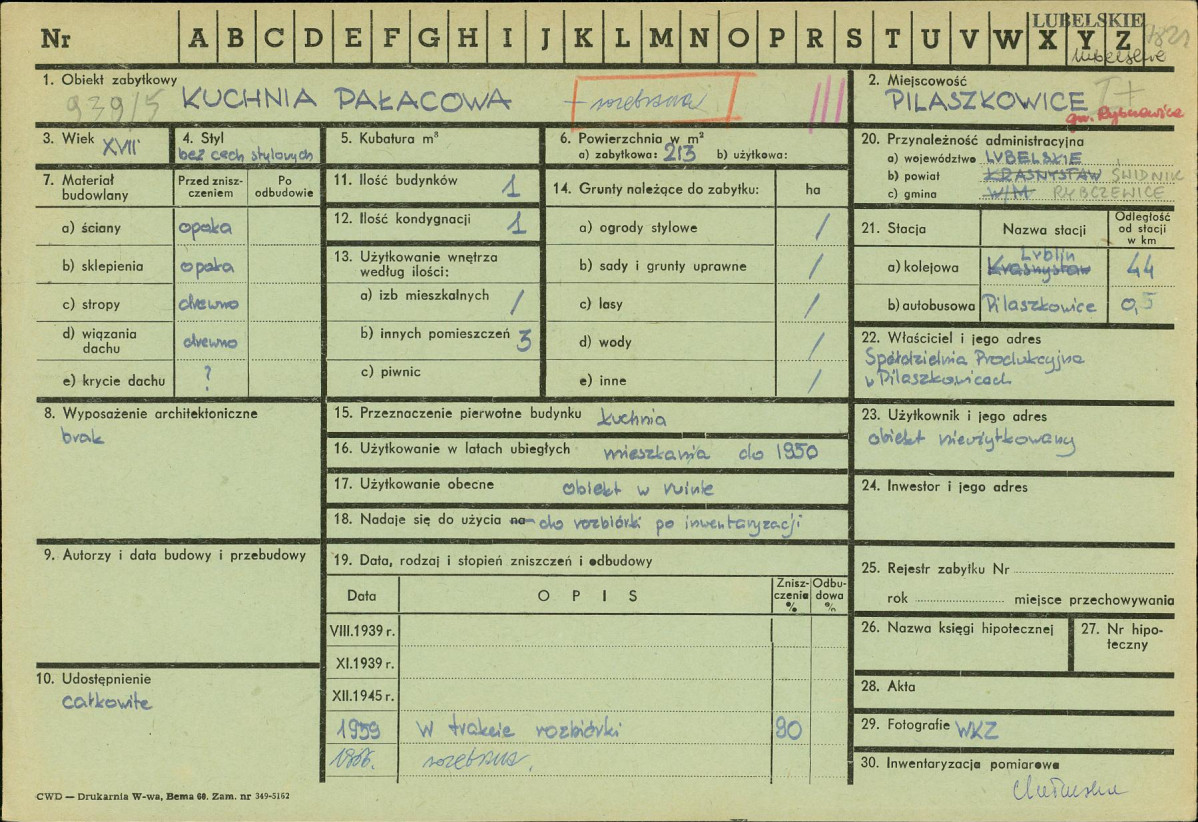 LUBELSKIE
Nr A B C D E F G H I J K L M N O P R S T U V W X Y Z
lubelskie
1. Obiekt zabytkowy
939/5 KUCHNIA PAŁACOWA - rozebrana
2. Miejscowość
PILASZKOWICE
gm. Rybczewice
3. Wiek XVII
4. Styl
bez cech stylowych
5. Kubatura m³
6. Powierzchnia w m²
a) zabytkowa: 213 b) użytkowa:
7. Materiał budowlany
Przed zniszczeniem
Po odbudowie
a) ściany opoka
b) sklepienia opoka
c) stropy drewno
d) wiązania dachu drewno
e) krycie dachu ?
8. Wyposażenie architektoniczne
brak
9. Autorzy i data budowy i przebudowy
10. Udostępnienie
całkowite
11. Ilość budynków 1
12. Ilość kondygnacji 1
13. Użytkowanie wnętrza według ilości:
a) izb mieszkalnych /
b) innych pomieszczeń 3
c) piwnic
14. Grunty należące do zabytku: ha
a) ogrody stylowe /
b) sady i grunty uprawne /
c) lasy /
d) wody /
e) inne /
15. Przeznaczenie pierwotne budynku kuchnia
16. Użytkowanie w latach ubiegłych mieszkania do 1950
17. Użytkowanie obecne obiekt w ruinie
18. Nadaje się do użycia na do rozbiórki po inwentaryzacji
19. Data, rodzaj i stopień zniszczeń i odbudowy
Data O P I S Zniszczenia % Odbudowa %
VIII.1939 r.
XI.1939 r.
XII.1945 r.
1959 W trakcie rozbiórki 90
rozebrana.
20. Przynależność administracyjna
a) województwo LUBELSKIE
b) powiat KRASNYSTAW ŚWIDNIK
c) gmina W/M RYBCZEWICE
21. Stacja Nazwa stacji Odległość od stacji w km
Lublin
a) kolejowa Krasnystaw 44
b) autobusowa Pilaszkowice 0,5
22. Właściciel i jego adres
Spółdzielnia Produkcyjna
w Pilaszkowicach
23. Użytkownik i jego adres
obiekt nieużytkowany
24. Inwestor i jego adres
25. Rejestr zabytku Nr
rok miejsce przechowywania
26. Nazwa księgi hipotecznej
27. Nr hipoteczny
28. Akta
29. Fotografie WKZ
30. Inwentaryzacja pomiarowa
CWD — Drukarnia W-wa, Bema 60. Zam. nr 349-5162